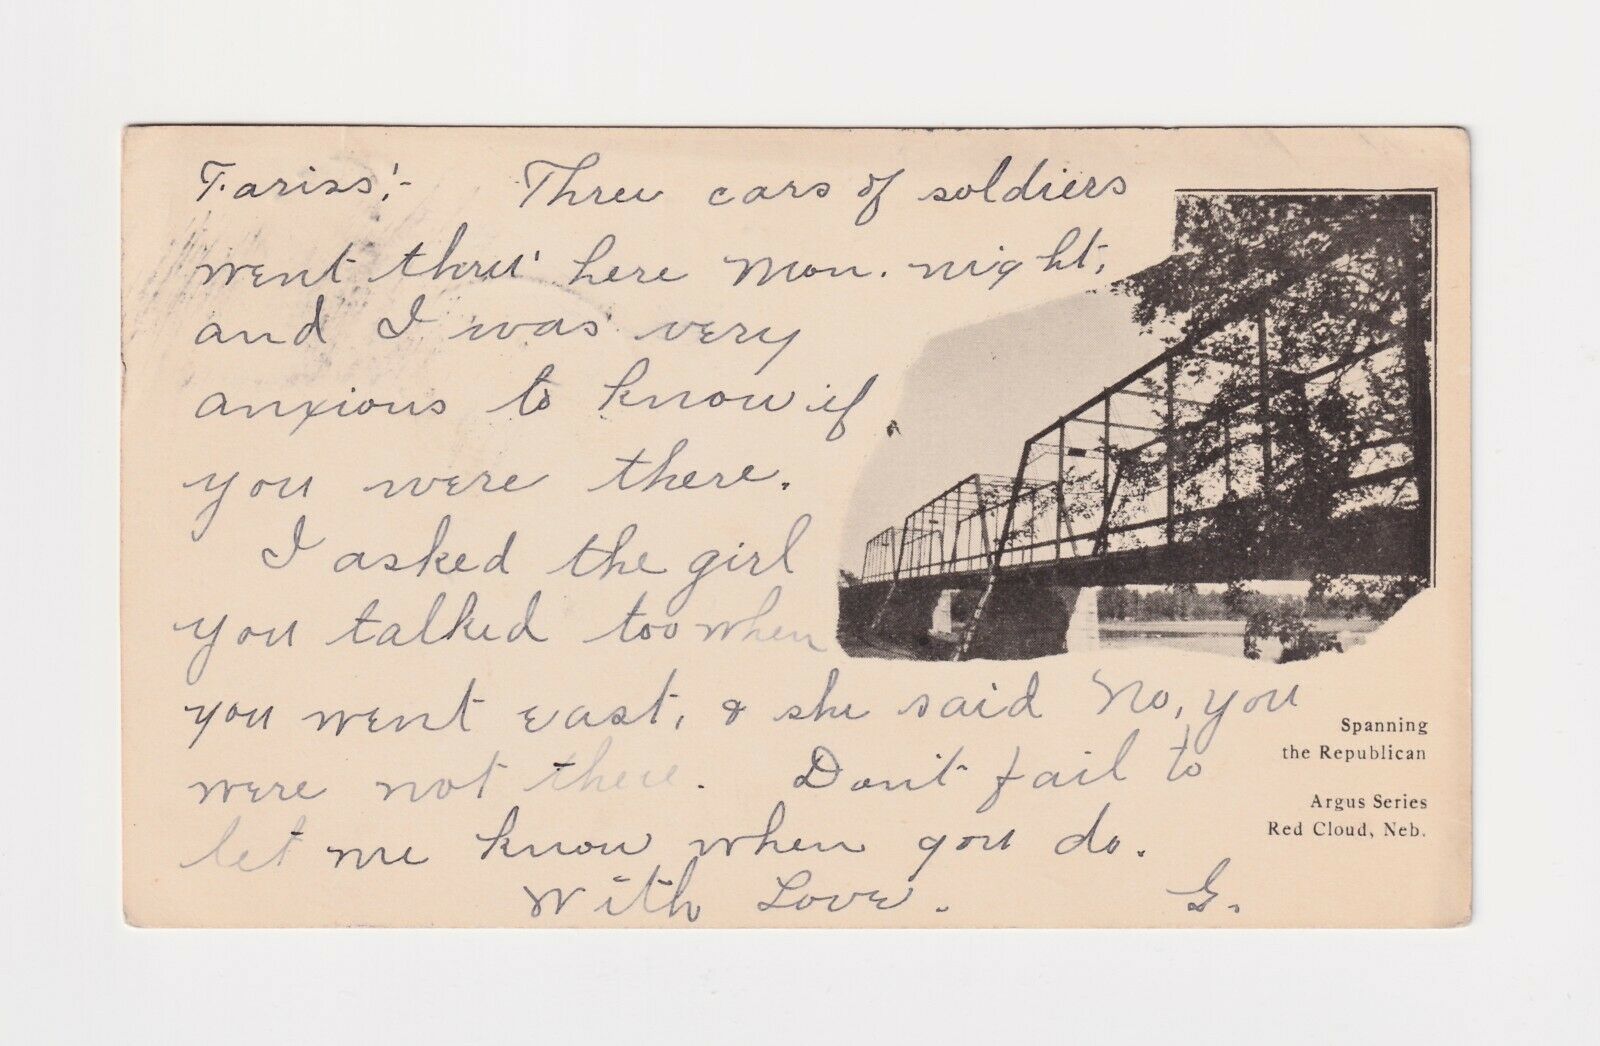 Fariss:- Three cars of soldiers
went thru' here Mon. night,
and I was very
anxious to know if
you were there.
I asked the girl
you talked too when
you went east, & she said No, you
were not there. Don't fail to
let me know when you do.
With Love. G.
Spanning
the Republican
Argus Series
Red Cloud, Neb.